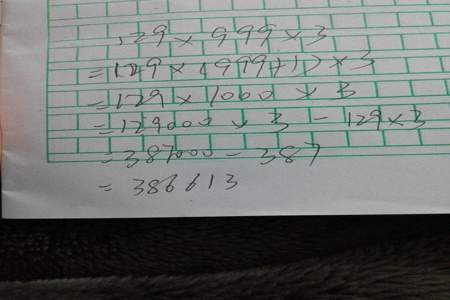 129×999×3
=129×(999+1)×3
=129×1000×3
=129000×3-129×3
=387000-387
=386613